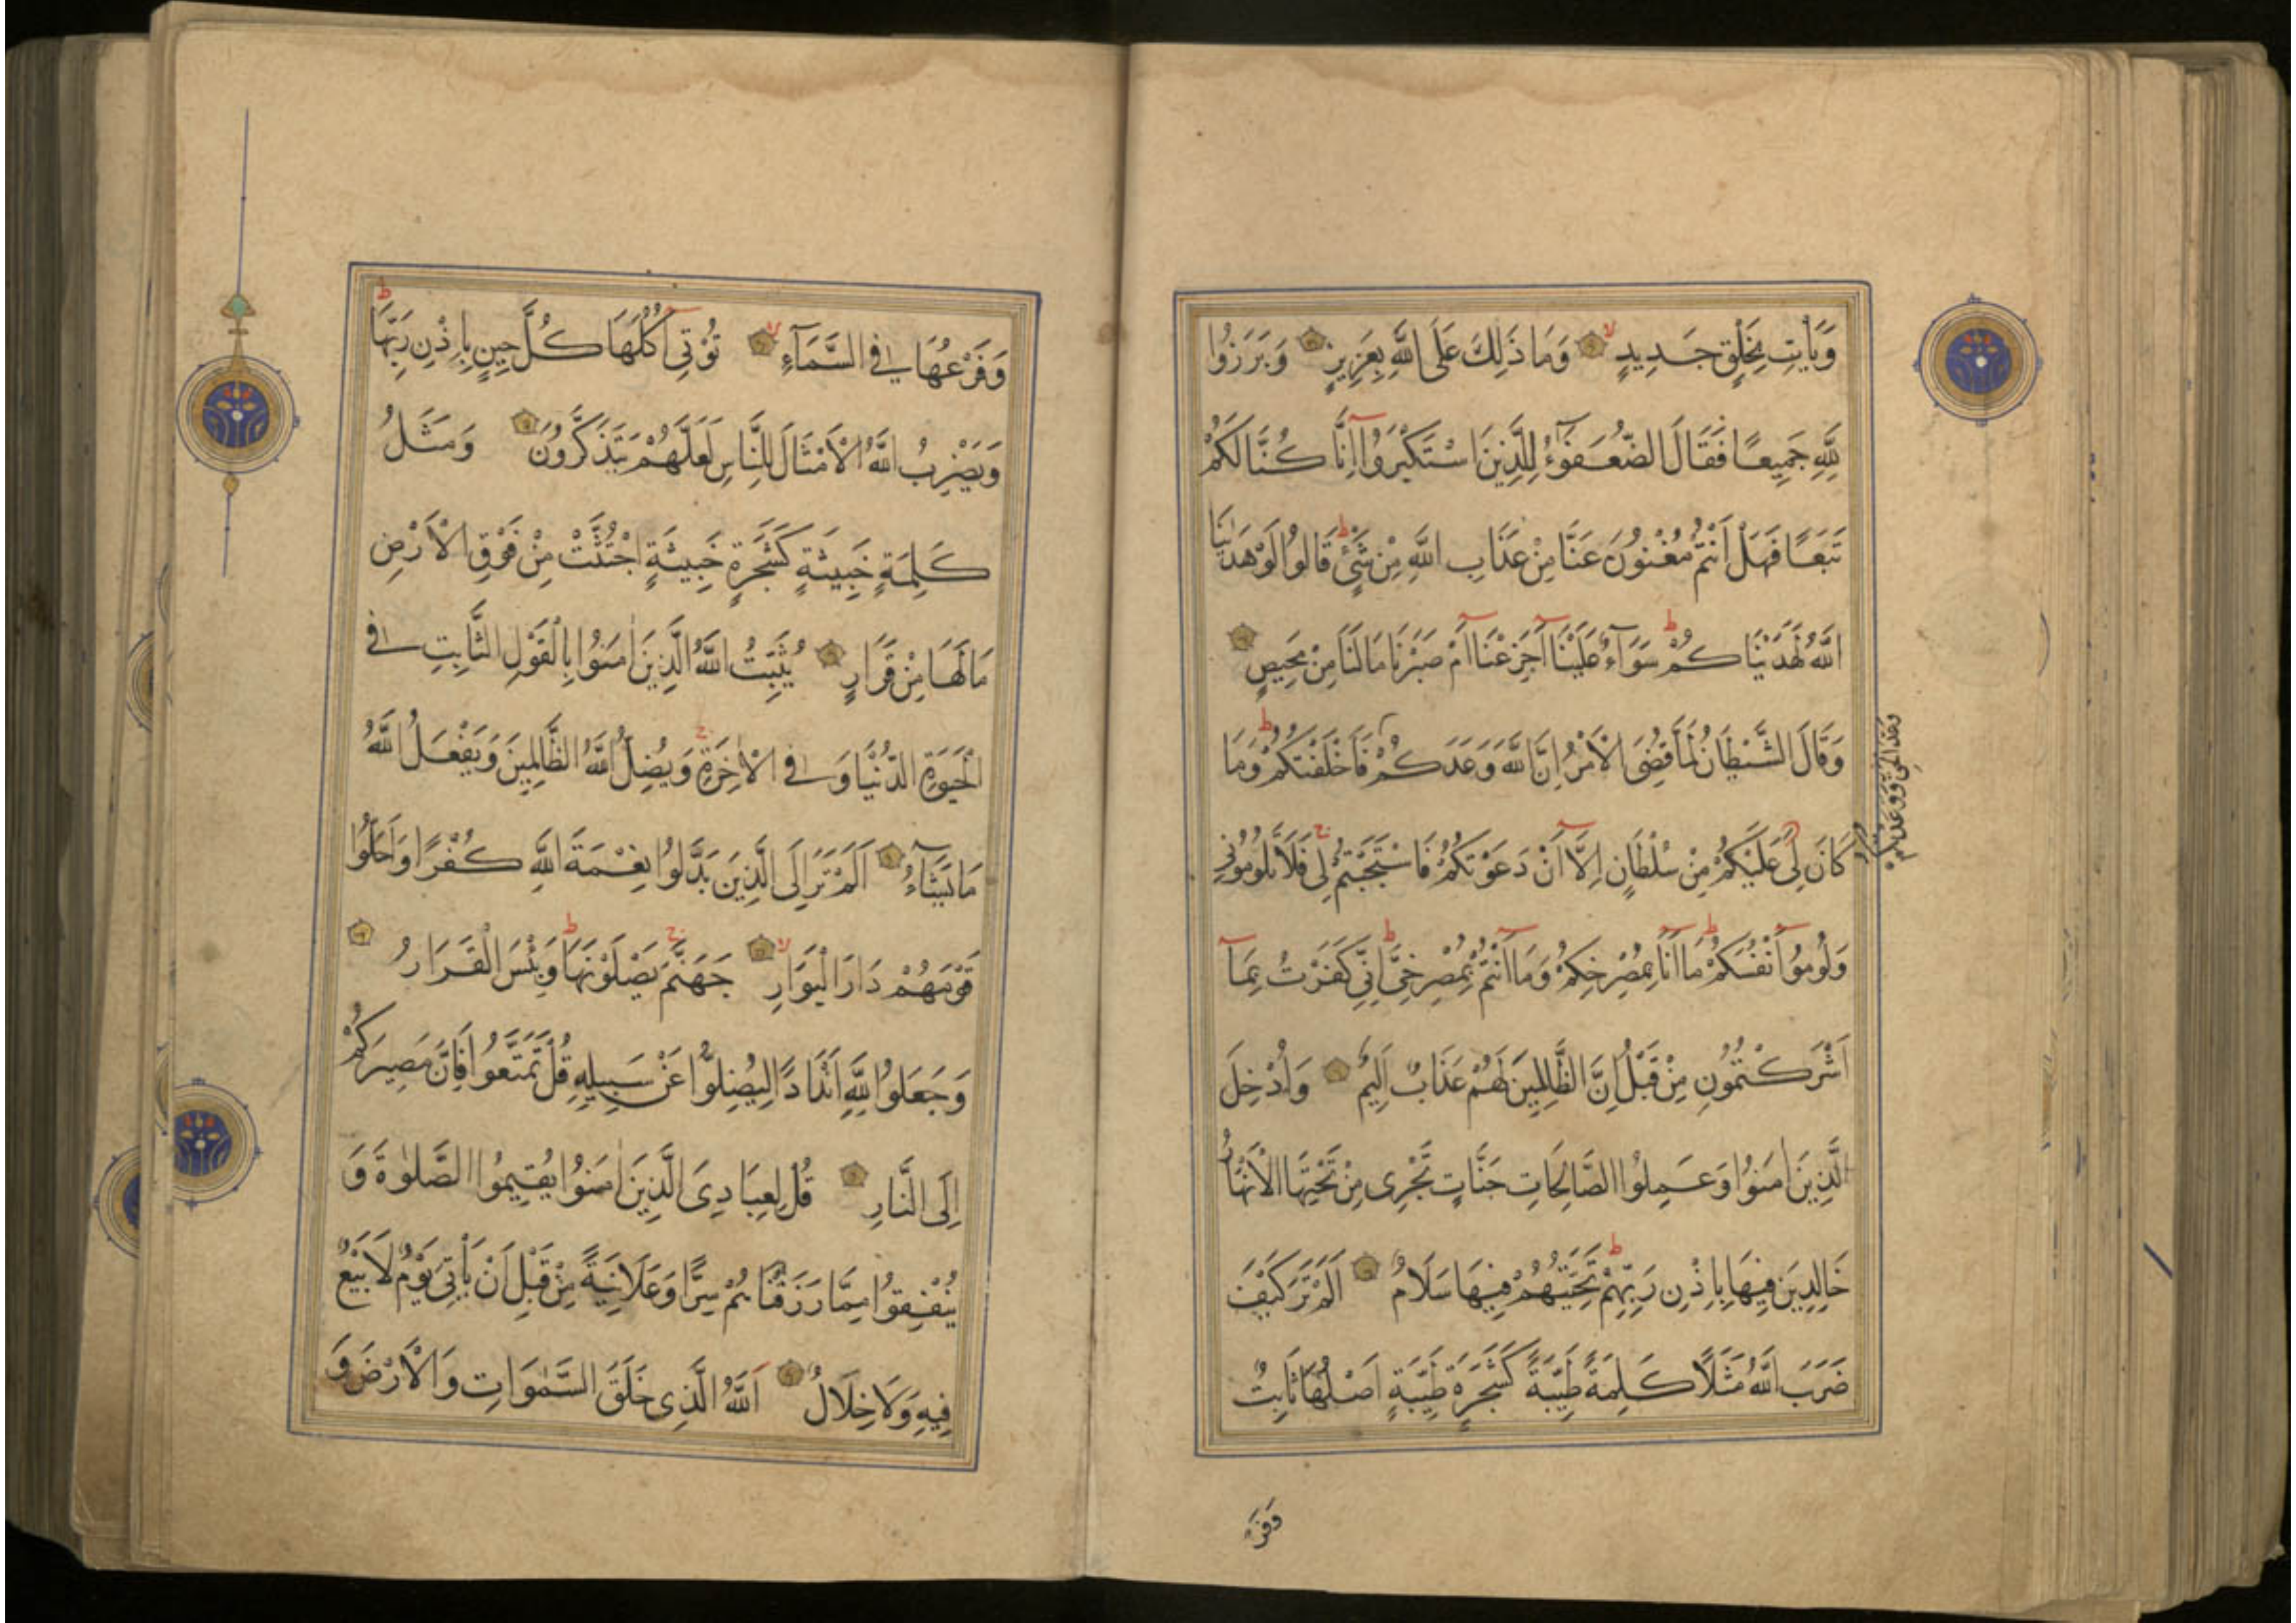 وَيَأْتِ بِخَلْقٍ جَدِيدٍ وَمَا ذَلِكَ عَلَى اللَّهِ بِعَزِيزٍ وَبَرَزُوا
لِلَّهِ جَمِيعًا فَقَالَ الضُّعَفَؤُا لِلَّذِينَ اسْتَكْبَرُوا إِنَّا كُنَّا لَكُمْ
تَبَعًا فَهَلْ أَنْتُمْ مُغْنُونَ عَنَّا مِنْ عَذَابِ اللَّهِ مِنْ شَيْءٍ قَالُوا لَوْ هَدٰينَا
اللَّهُ لَهَدَيْنَاكُمْ سَوَآءٌ عَلَيْنَا أَجَزِعْنَا أَمْ صَبَرْنَا مَا لَنَا مِنْ مَحِيصٍ
وَقَالَ الشَّيْطَانُ لَمَّا قُضِيَ الْأَمْرُ إِنَّ اللَّهَ وَعَدَكُمْ فَأَخْلَفْتُكُمْ وَمَا
كَانَ لِيَ عَلَيْكُمْ مِنْ سُلْطَانٍ إِلَّا أَنْ دَعَوْتُكُمْ فَاسْتَجَبْتُمْ لِي فَلَا تَلُومُونِي
وَلُومُوا أَنْفُسَكُمْ مَا أَنَا بِمُصْرِخِكُمْ وَمَا أَنْتُمْ بِمُصْرِخِيَّ إِنِّي كَفَرْتُ بِمَا
أَشْرَكْتُمُونِ مِنْ قَبْلُ إِنَّ الظَّالِمِينَ لَهُمْ عَذَابٌ أَلِيمٌ وَأُدْخِلَ
الَّذِينَ اٰمَنُوا وَعَمِلُوا الصَّالِحَاتِ جَنَّاتٍ تَجْرِي مِنْ تَحْتِهَا الْأَنْهَارُ
خَالِدِينَ فِيهَا بِإِذْنِ رَبِّهِمْ تَحِيَّتُهُمْ فِيهَا سَلَامٌ أَلَمْ تَرَ كَيْفَ
ضَرَبَ اللَّهُ مَثَلًا كَلِمَةً طَيِّبَةً كَشَجَرَةٍ طَيِّبَةٍ أَصْلُهَا ثَابِتٌ
وَفَرْعُهَا فِي السَّمَآءِ تُؤْتِي أُكُلَهَا كُلَّ حِينٍ بِإِذْنِ رَبِّهَا
وَيَضْرِبُ اللَّهُ الْأَمْثَالَ لِلنَّاسِ لَعَلَّهُمْ يَتَذَكَّرُونَ وَمَثَلُ
كَلِمَةٍ خَبِيثَةٍ كَشَجَرَةٍ خَبِيثَةٍ اجْتُثَّتْ مِنْ فَوْقِ الْأَرْضِ
مَا لَهَا مِنْ قَرَارٍ يُثَبِّتُ اللَّهُ الَّذِينَ اٰمَنُوا بِالْقَوْلِ الثَّابِتِ فِي
الْحَيٰوةِ الدُّنْيَا وَفِي الْاٰخِرَةِ وَيُضِلُّ اللَّهُ الظَّالِمِينَ وَيَفْعَلُ اللَّهُ
مَا يَشَآءُ أَلَمْ تَرَ إِلَى الَّذِينَ بَدَّلُوا نِعْمَةَ اللَّهِ كُفْرًا وَأَحَلُّوا
قَوْمَهُمْ دَارَ الْبَوَارِ جَهَنَّمَ يَصْلَوْنَهَا وَبِئْسَ الْقَرَارُ
وَجَعَلُوا لِلَّهِ أَنْدَادًا لِيُضِلُّوا عَنْ سَبِيلِهِ قُلْ تَمَتَّعُوا فَإِنَّ مَصِيرَكُمْ
إِلَى النَّارِ قُلْ لِعِبَادِيَ الَّذِينَ اٰمَنُوا يُقِيمُوا الصَّلٰوةَ وَ
يُنْفِقُوا مِمَّا رَزَقْنَاهُمْ سِرًّا وَعَلَانِيَةً مِنْ قَبْلِ أَنْ يَأْتِيَ يَوْمٌ لَا بَيْعٌ
فِيهِ وَلَا خِلَالٌ اَللَّهُ الَّذِي خَلَقَ السَّمٰوَاتِ وَالْأَرْضَ وَ